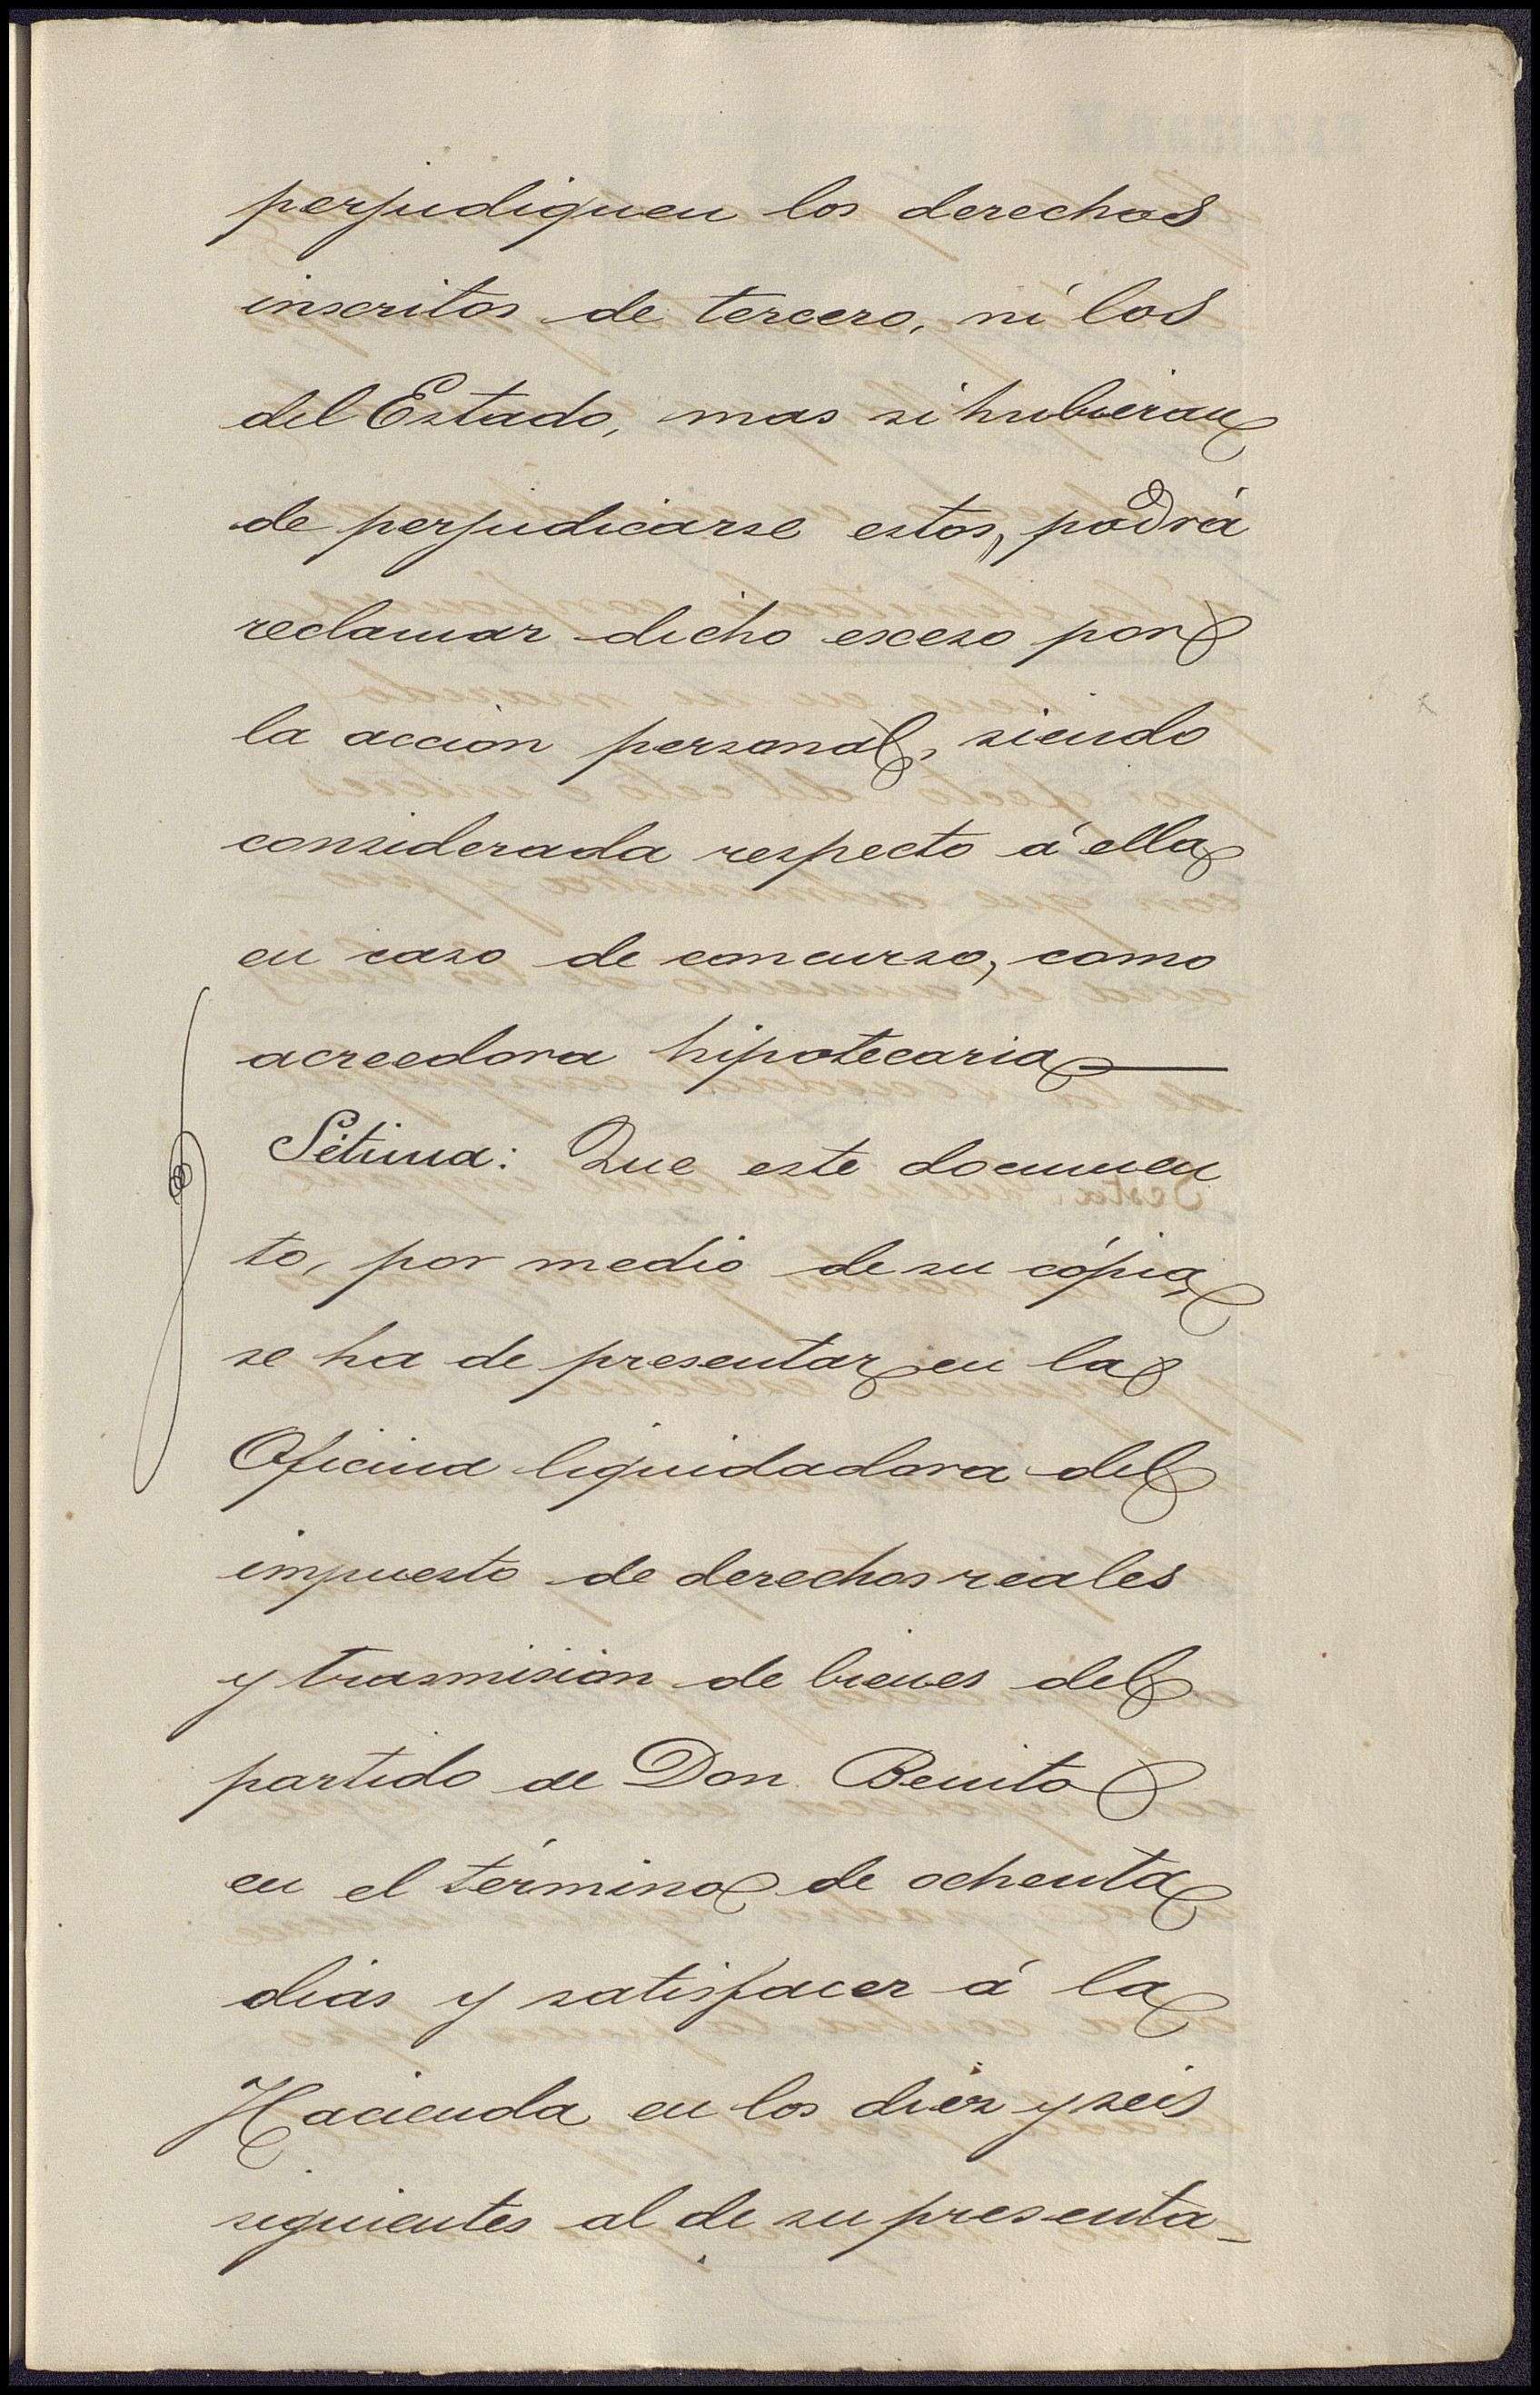 perjudiquen los derechos
inscritos de tercero, ni los
del Estado, mas si hubieran
de perjudicarse estos, podrá
reclamar dicho esceso por
la accion personal, siendo
considerada respecto á ella
en caso de concurso, como
acreedora hipotecaria
Sétima: Que este documen
to, por medio de su cópia,
se ha de presentar en la
Oficina liquidadora del
impuesto de derechos reales
y trasmision de bienes del
partido de Don Benito
en el término de ochenta
dias y satisfacer á la
Hacienda en los diez y seis
siguientes al de su presenta-